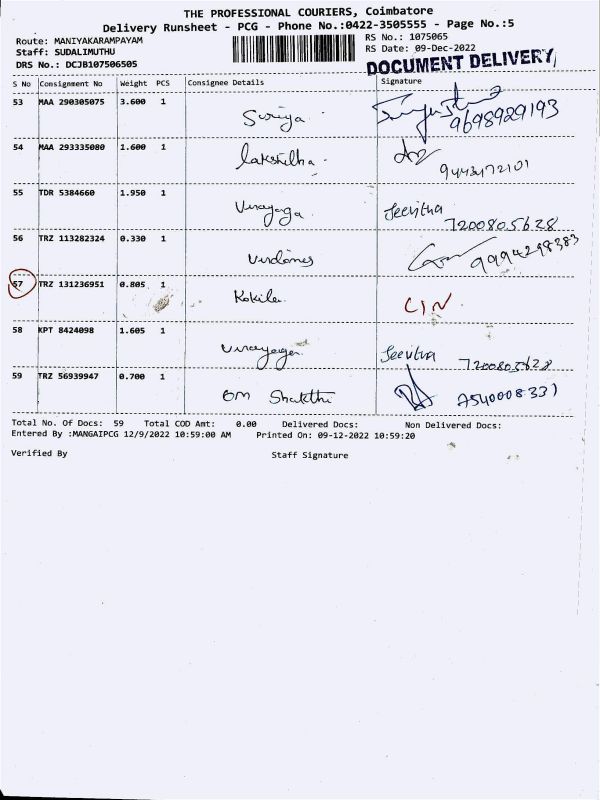 THE PROFESSIONAL COURIERS, Coimbatore
Delivery Runsheet - PCG - Phone No.:0422-3505555 - Page No.:5
Route: MANIYAKARAMPAYAM
Staff: SUDALIMUTHU
DRS No.: DCJB107506505
RS No.: 1075065
RS Date: 09-Dec-2022
DOCUMENT DELIVERY
S No Consignment No Weight PCS Consignee Details Signature
53 MAA 290305075 3.600 1 Suriya 9698929193
54 MAA 293335080 1.600 1
55 TDR 5384660 1.950 1 Vinayaga Jeevitha 7200805628
56 TRZ 113282324 0.330 1 9994298383
57 TRZ 131236951 0.805 1 Kokila CIN
58 KPT 8424098 1.605 1 Vinayaga Jeevitha 7200805628
59 TRZ 56939947 0.700 1 OM Shakthi 7540008331
Total No. Of Docs: 59 Total COD Amt: 0.00 Delivered Docs: Non Delivered Docs:
Entered By :MANGAIPCG 12/9/2022 10:59:00 AM Printed On: 09-12-2022 10:59:20
Verified By Staff Signature